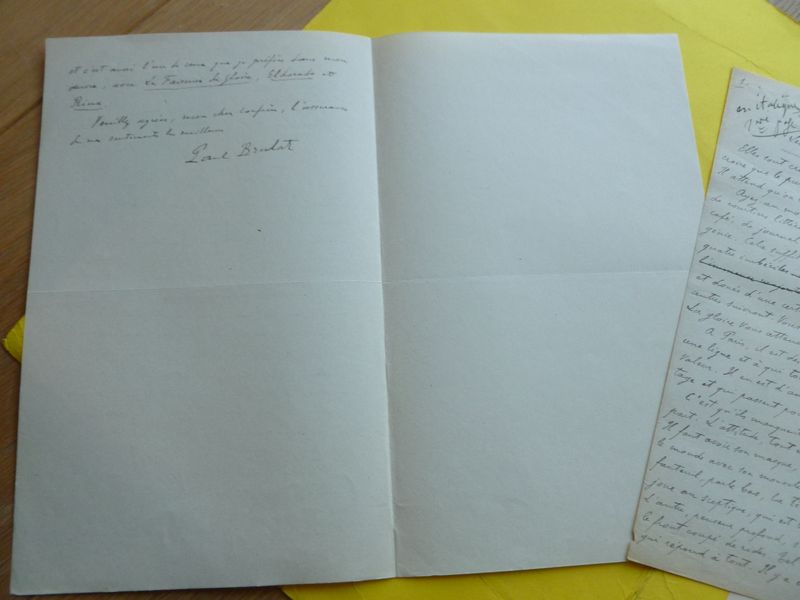 et c'est aussi l'un de ceux que je préfère dans mon
œuvre, avec La Faiseuse de Gloire, Eldorado et
Rina.
Veuillez agréer, mon cher confrère, l'assurance
de mes sentiments les meilleurs
Paul Brulat
en italiques
Elles sont
croire que le
Il attend qu'on
Ayez au
de
café, de journal
génie. Cela suffit
quatre imbéciles
et doués d'une
autres suivront. Vous
La gloire vous attend
A Paris, il est
une ligne et à qui
valeur. Il en est
et qui passent
C'est qu'ils
part. L'attitude, tout
Il faut avoir son masque,
le monde avec son
fauteuil, parle bas, la
joue au sceptique, qui est
L'autre, penseur profond,
le front coupé de rides.
qui répond à tout. Il y a